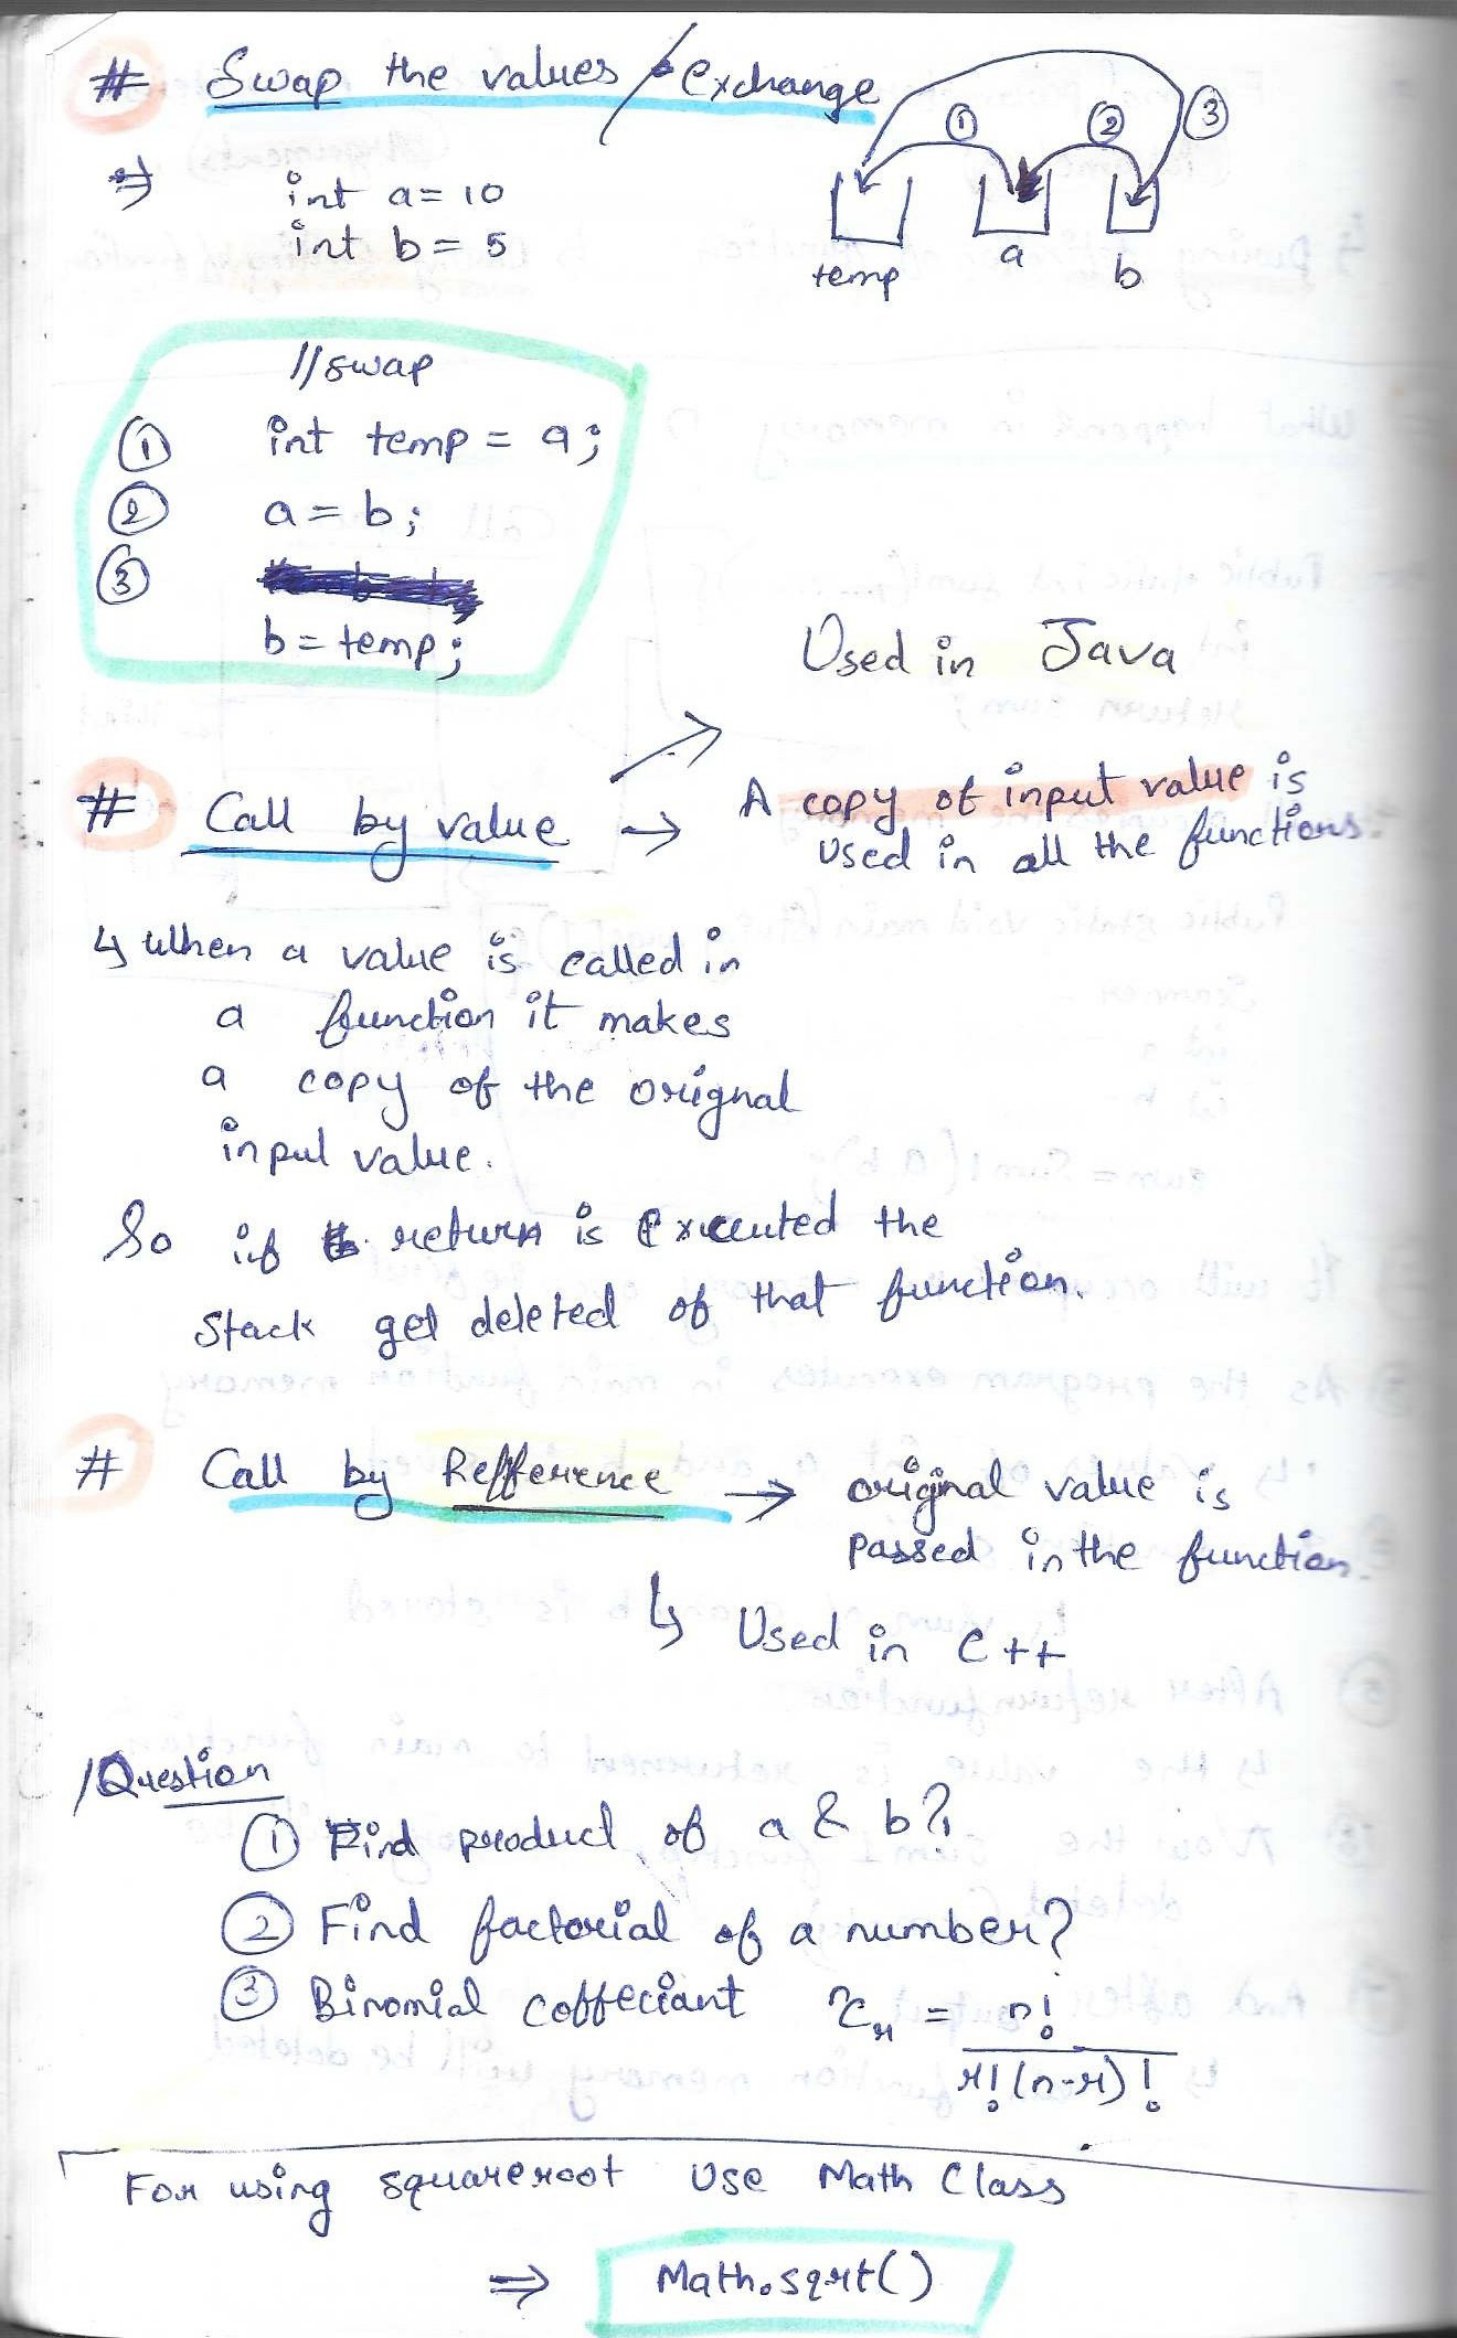 # Swap the values / exchange
① ② ③
⇒ int a = 10
int b = 5
temp a b
//swap
① int temp = a;
② a = b;
③
b = temp;
Used in Java
# Call by value → A copy of input value is
used in all the functions.
↳ When a value is called in
a function it makes
a copy of the orignal
input value.
So if return is executed the
stack get deleted of that function.
# Call by Refference → orignal value is
passed in the function.
↳ Used in C++
/Question
① Find product of a & b?
② Find factorial of a number?
③ Binomial coffeciant ⁿCᵣ = n!
r!(n-r)!
For using squareroot use Math Class
⇒ Math.sqrt()